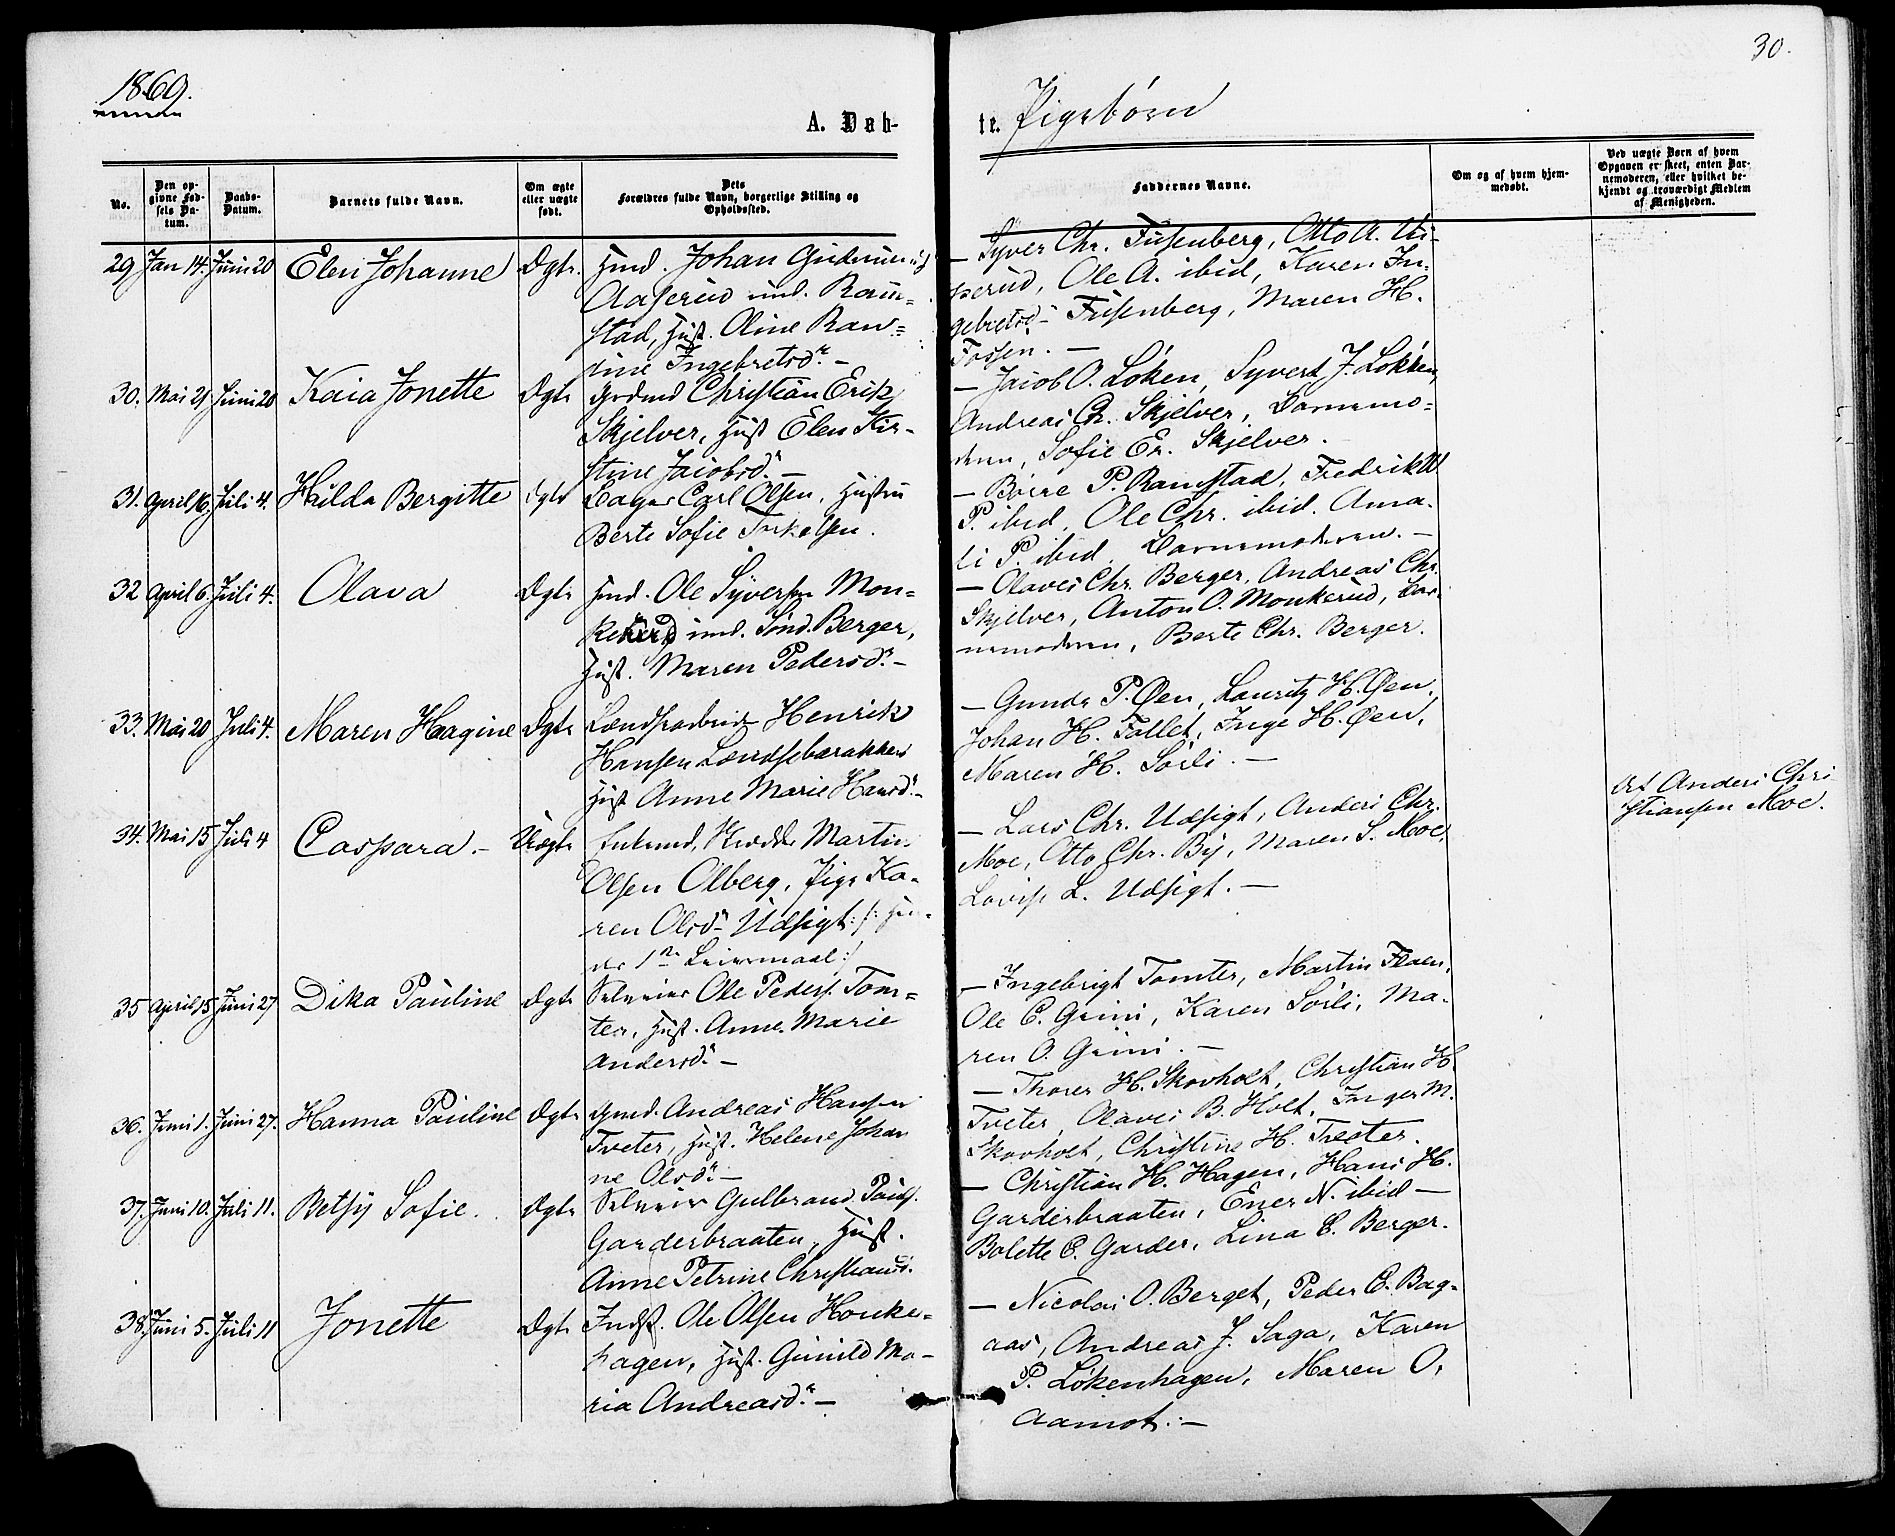 30.
1869.
A. Døb-
te. Pigebörn
No.
Den op-
givne Fød-
sels Da-
tum.
Daabs-
Datum.
Barnets fulde Navn.
Om ægte
eller uægte
født.
Dets
Forældres fulde Navn, borgerlige Stilling og
Opholdssted.
Faddernes Navne.
Om og af hvem hjem-
medøbt.
Ved uægte Børn af hvem
Opgaven er skeet, enten Bar-
nemoderen, eller hvilket be-
kjendt og troværdigt Medlem
af Menigheden.
29 Jan 14. Juni 20 Elen Johanne Ægte. Johan
Aaserud ind. Ram-
stad, Hust. Oline Ran-
dine Ingebretsd. –
– Syver Chr. Fusenberg, Otto A.
Ole A. ibid, Karen In-
gebretsd. Fusenberg, Maren H.
Fossen. –
30. Mai 21 Juni 20 Kaia Jonette Ægte Grdmd Christian Erik
Skjelver, Hust Elen Kir-
stine Jacobsd. –
– Jacob O. Löken, Syvert J. Lökken,
Andreas Ch. Skjelver, Barnemo-
deren, Sofie Er. Skjelver.
31. April 16. Juli 4. Hilda Bergitte Ægte Bager Carl Olsen, Hustru
Berte Sofie Torkelsen.
– Börre P. Ramstad, Fredrik
P. ibid, Ole Chr. ibid. Ama-
li P. ibid, Barnemoderen. –
32 April 6. Juli 4. Olava Ægte Ole Syversen Mon-
kerud ind. Sönd. Berger,
Hust. Maren Pedersd. –
– Olaves Chr. Berger, Andreas Chr.
Skjelver, Anton O. Monkerud, Bar-
nemoderen, Berte Chr. Berger.
33. Mai 20 Juli 4. Maren Haagine Ægte Lændsarbeider Henrik
Hansen Lændsebarakken
Hust Anne Marie Hansd. –
– Gunder P. Öen, Lauritz H. Öen,
Johan H. Tallet, Inge H. Öen,
Maren H. Sörli. –
34. Mai 15 Juli 4 Caspara. – Uægte Martin
Olsen Olberg, Pige Ka-
ren Olsd. Udsigt /: Hen-
des 1ste Leiermaal :/
– Lars Chr. Udsigt, Anders Chr.
Moe, Otto Chr. By, Maren S. Moe,
Lovise L. Udsigt. –
Anders Chri-
stiansen Moe.
35 April 15 Juni 27 Dika Pauline Ægte Selveier Ole Peders. Tom-
ter, Hust. Anne Marie
Andersd. –
– Ingebrigt Tomter, Martin Flaen,
Ole C. Grini, Karen Sörli, Ma-
ren O. Grini. –
36. Juni 1. Juni 27. Hanna Pauline Ægte Andreas Hansen
Tveter, Hust. Helene Johan
ne Olsd. –
– Thorer H. Skovholt, Christian H.
Tveter, Olaves B. Holt, Inger M.
Skovholt, Christine H. Tveter.
37. Juni 10. Juli 11. Betsy Sofie. Ægte Selveier Gulbrand Pauls.
Garderbraaten, Hust.
Anne Petrine Christiansd.
– Christian H. Hagen, Hans H.
Garderbraaten, Ener N. ibid –
Bolette C. Garder, Lina C. Berger.
38. Juni 5. Juli 11 Jonette Ægte Indst. Ole Olsen Houke-
hagen, Hust. Gunild Ma-
ria Andreasd. –
– Nicolai O. Berget, Peder C. Bag-
aas, Andreas J. Saga, Karen
P. Lökenhagen, Maren O.
Aamot. –